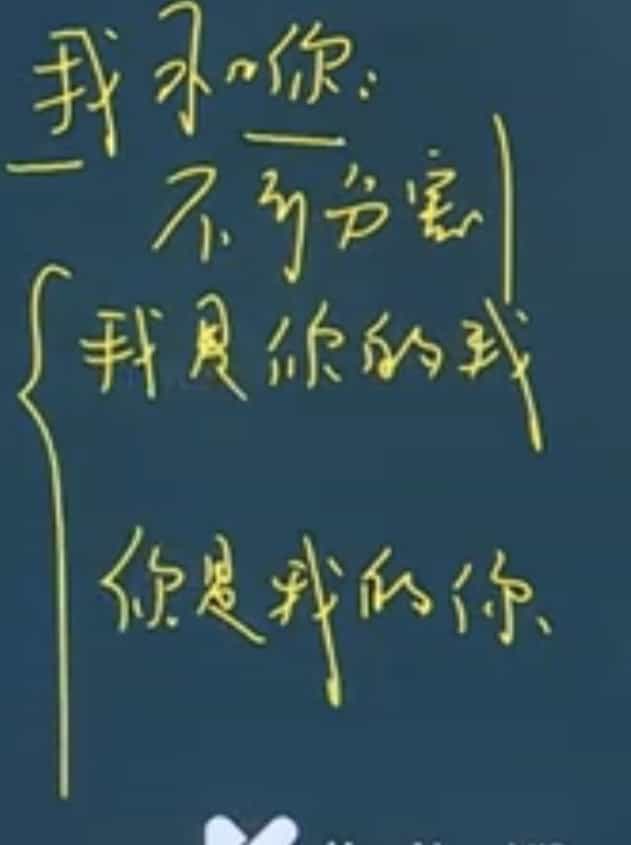 我和你:
不可分割
我是你的我
你是我的你、